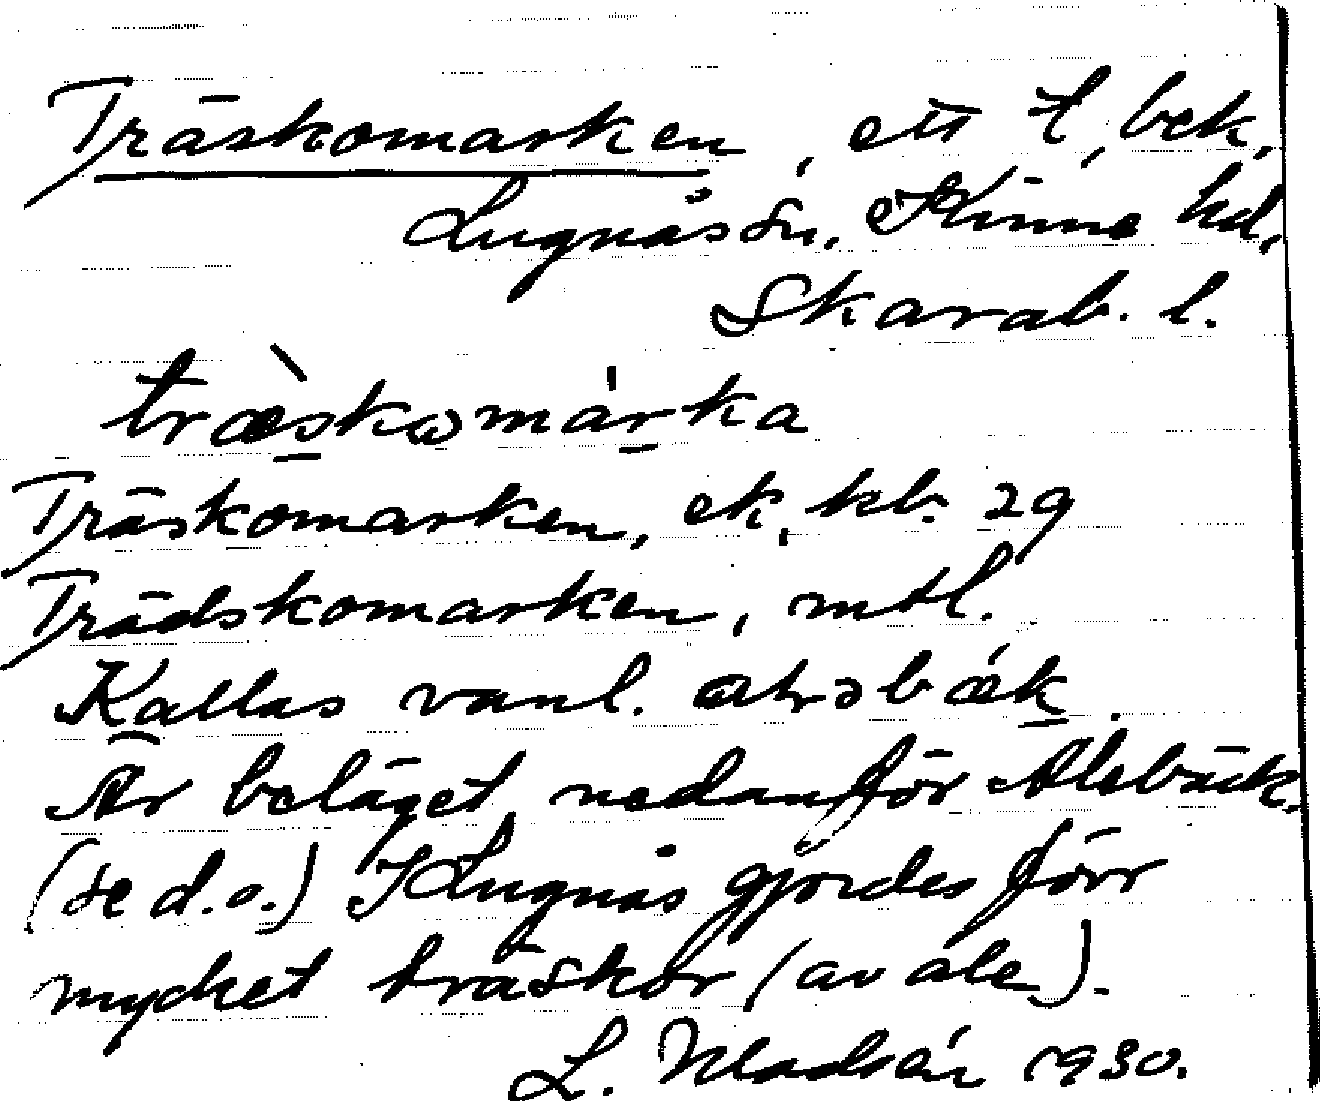 Träskomarken, ett t, bek,
Lugnås sn, Kinne hd,
Skarab. l.
træ̀skωmárka
Träskomarken, ek, kb. 29
Trädskomarken, mtl.
Kallas vanl. bǽk.
Är beläget nedanför Alebäck,
(se d.o.) I Lugnås gjordes förr
mycket träskor (av ale).
L. 1930.